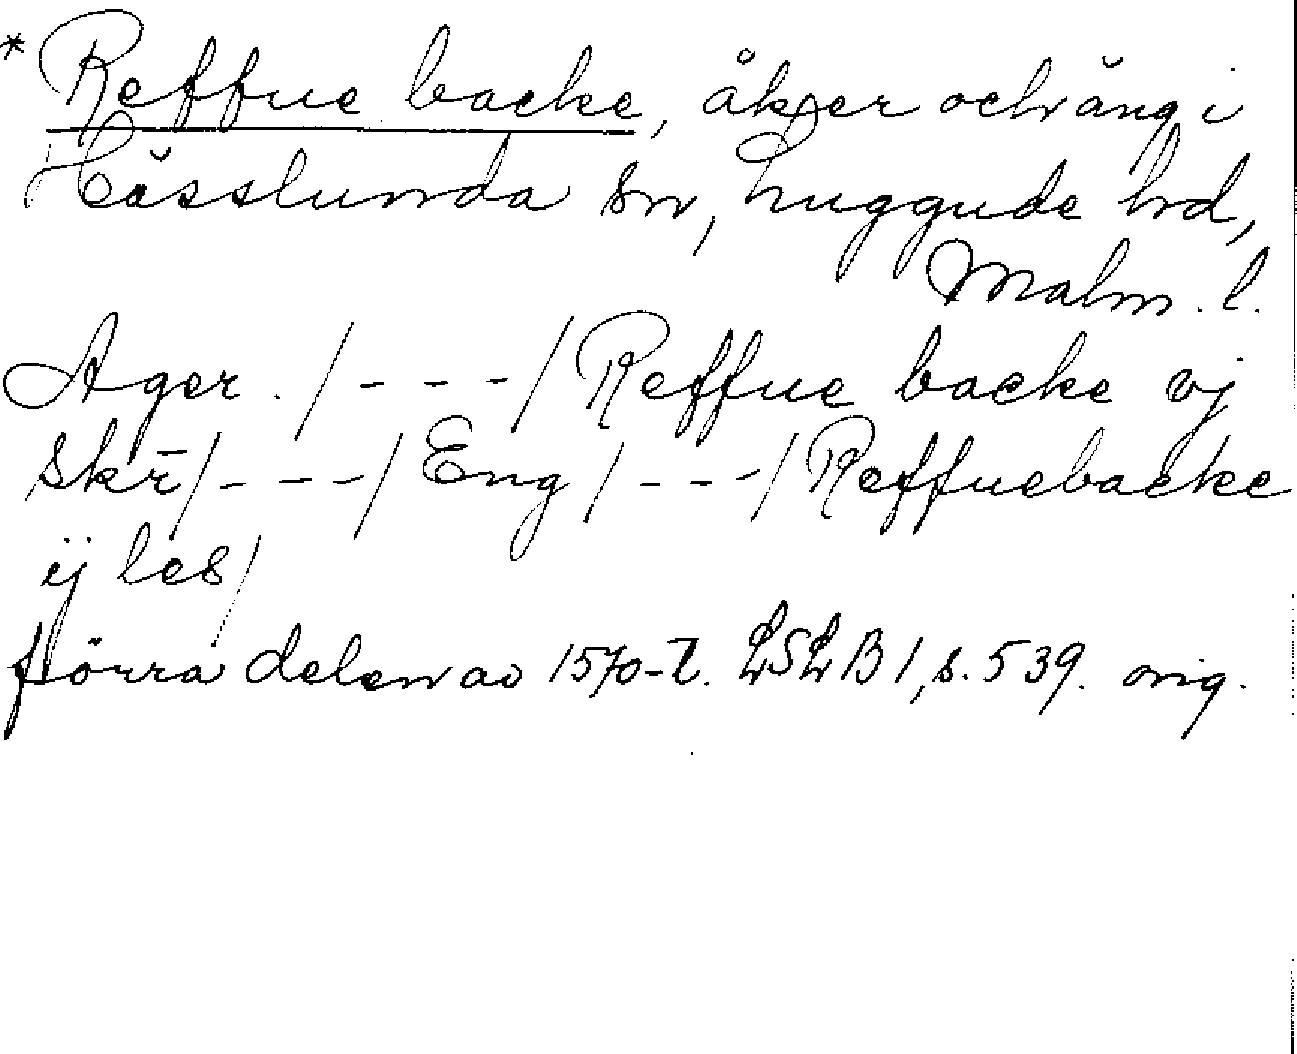 * Reffue backe, åker och äng i
Hässlunda sn, Luggude hd,
Malm. l.
Ager. /---/ Reffue backe vj
skr̄ /---/ Eng /---/ Reffuebacke
ij les /
förra delen av 1570-t. LSLB 1, s. 539. orig.